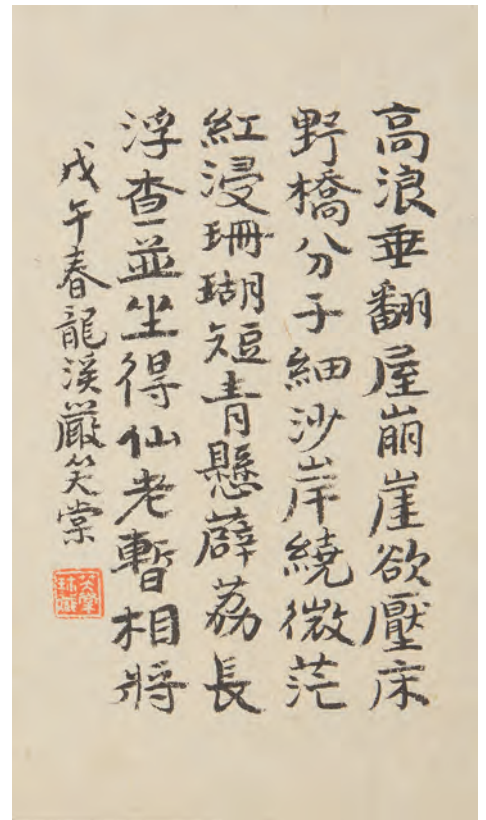 高浪垂翻屋崩崖欲壓床
野橋分子細沙岸繞微茫
紅浸珊瑚短青懸薜荔長
浮查並坐得仙老暫相將
戊午春龍溪嚴笑棠